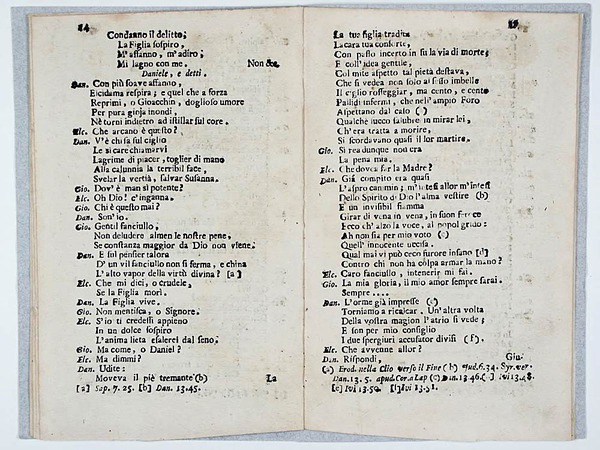 14
Condanno il delitto;
La Figlia sospiro,
M'affanno, m'adiro;
Mi lagno con me. Non &c.
Daniele, e detti.
Dan. Con più soave affanno,
Elcidama respira; e quel che a forza
Reprimi, o Gioacchin, doglioso umore
Per pura gioja inondi,
Nè torni indietro ad istillar sul core.
Elc. Che arcano è questo?
Dan. V'è chi sa sul ciglio
Le sì care chiamarvi
Lagrime di piacer, toglier di mano
Alla calunnia la terribil face,
Svelar la verità, salvar Susanna.
Gio. Dov' è man sì potente?
Elc. Oh Dio! c'inganna.
Gio. Chi è questo mai?
Dan. Son' io.
Gio. Gentil fanciullo,
Non deludere almen le nostre pene,
Se constanza maggior da Dio non viene.
Dan. E sul pensier talora
D' un vil fanciullo non si ferma, e china
L'alto vapor della virtù divina? [a]
Elc. Che mi dici, o crudele,
Se la Figlia morì.
Dan. La Figlia vive.
Gio. Non mentisca, o Signore.
Elc. S'io ti credessi appieno
In un dolce sospiro
L'anima lieta esalerei dal seno.
Gio. Ma come, o Daniel?
Elc. Ma dimmi?
Dan. Udite:
Moveva il piè tremante (b)
La
[a] Sap. 7. 25. [b] Dan. 13.45.
La tuo figlia tradita
La cara tua consorte,
Con passo incerto in su la via di morte;
E coll' idea gentile,
Col mite aspetto tal pietà destava,
Che si vedea non solo al sesso imbelle
Il ciglio rosseggiar, ma cento, e cento
Pallidi infermi, che nell' ampio Foro
Aspettano dal caso ( )
Qualche succo salubre in mirar lei,
Ch'era tratta a morire,
Si scordavano quasi il lor martire.
Gio. Sì rea dunque non era
La pena mia.
Elc. Che dovea far la Madre?
Dan. Già compito era quasi
L'aspro cammin; m'intesi allor m'intesi
Dello Spirito di Dio l'alma vestire (b)
E un invisibil fiamma
Girar di vena in vena, in suon feroce
Ecco ch'alzo la voce, al popol grido:
Ah non sia per mio voto (c)
Quell' innocente uccisa.
Qual mai vi può cieco furore insano [d]
Contro chi non ha colpa armar la mano?
Elc. Caro fanciullo, intenerir mi fai.
Gio. La mia gloria, il mio amor sempre sarai.
Sempre ....
Dan. L'orme già impresse (e)
Torniamo a ricalcar. Un' altra volta
Della vostra magion l'atrio si vede;
E son per mio consiglio
I due spergiuri accusator divisi (f).
Elc. Che avvenne allor?
Dan. Rispondi,
Giu-
(a) Erod. nella Clio verso il Fine (b) Jud. 6. 34. Syr. ver.
Dan. 13. 5. apud. Cor. a Lap (c) Dan. 13.46. [ ] ivi 13. 48.
[e] Ivi 13.50. [f] Ivi 13. 51.